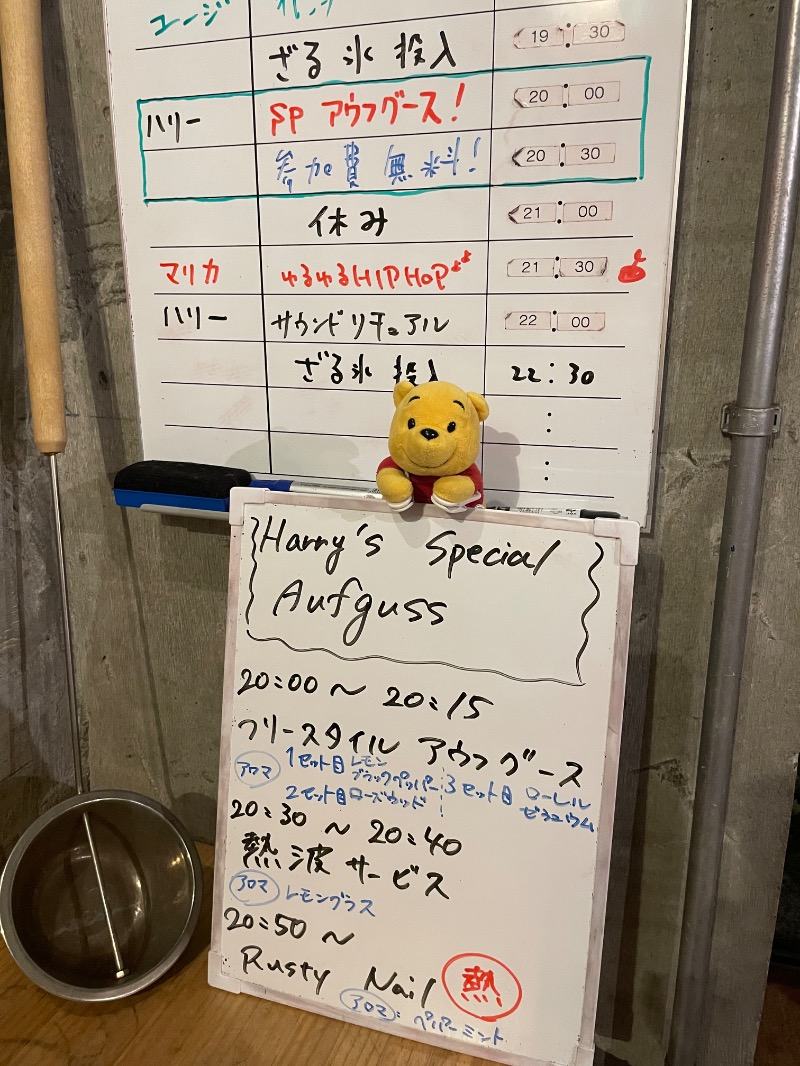 ユージ
ざる氷投入 19:30
ハリー SPアウフグース! 20:00
参加費無料! 20:30
休み 21:00
マリカ ゆるゆるHIPHOP 21:30
ハリー サウンドリチュアル 22:00
ざる氷投入 22:30
:
:
Harry's Special
Aufguss
20:00〜20:15
フリースタイル アウフグース
アロマ 1セット目レモン
ブラックペッパー
2セット目ローズウッド
3セット目 ローレル
ゼラニウム
20:30〜20:40
熱波サービス
アロマ レモングラス
20:50〜
Rusty Nail 熱
アロマ:ペパーミント